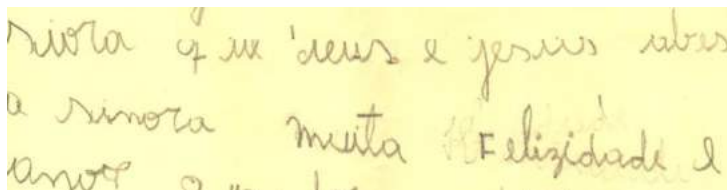 siora q ue deus e jesuis abes
a sinora muita Felizidade e
amor